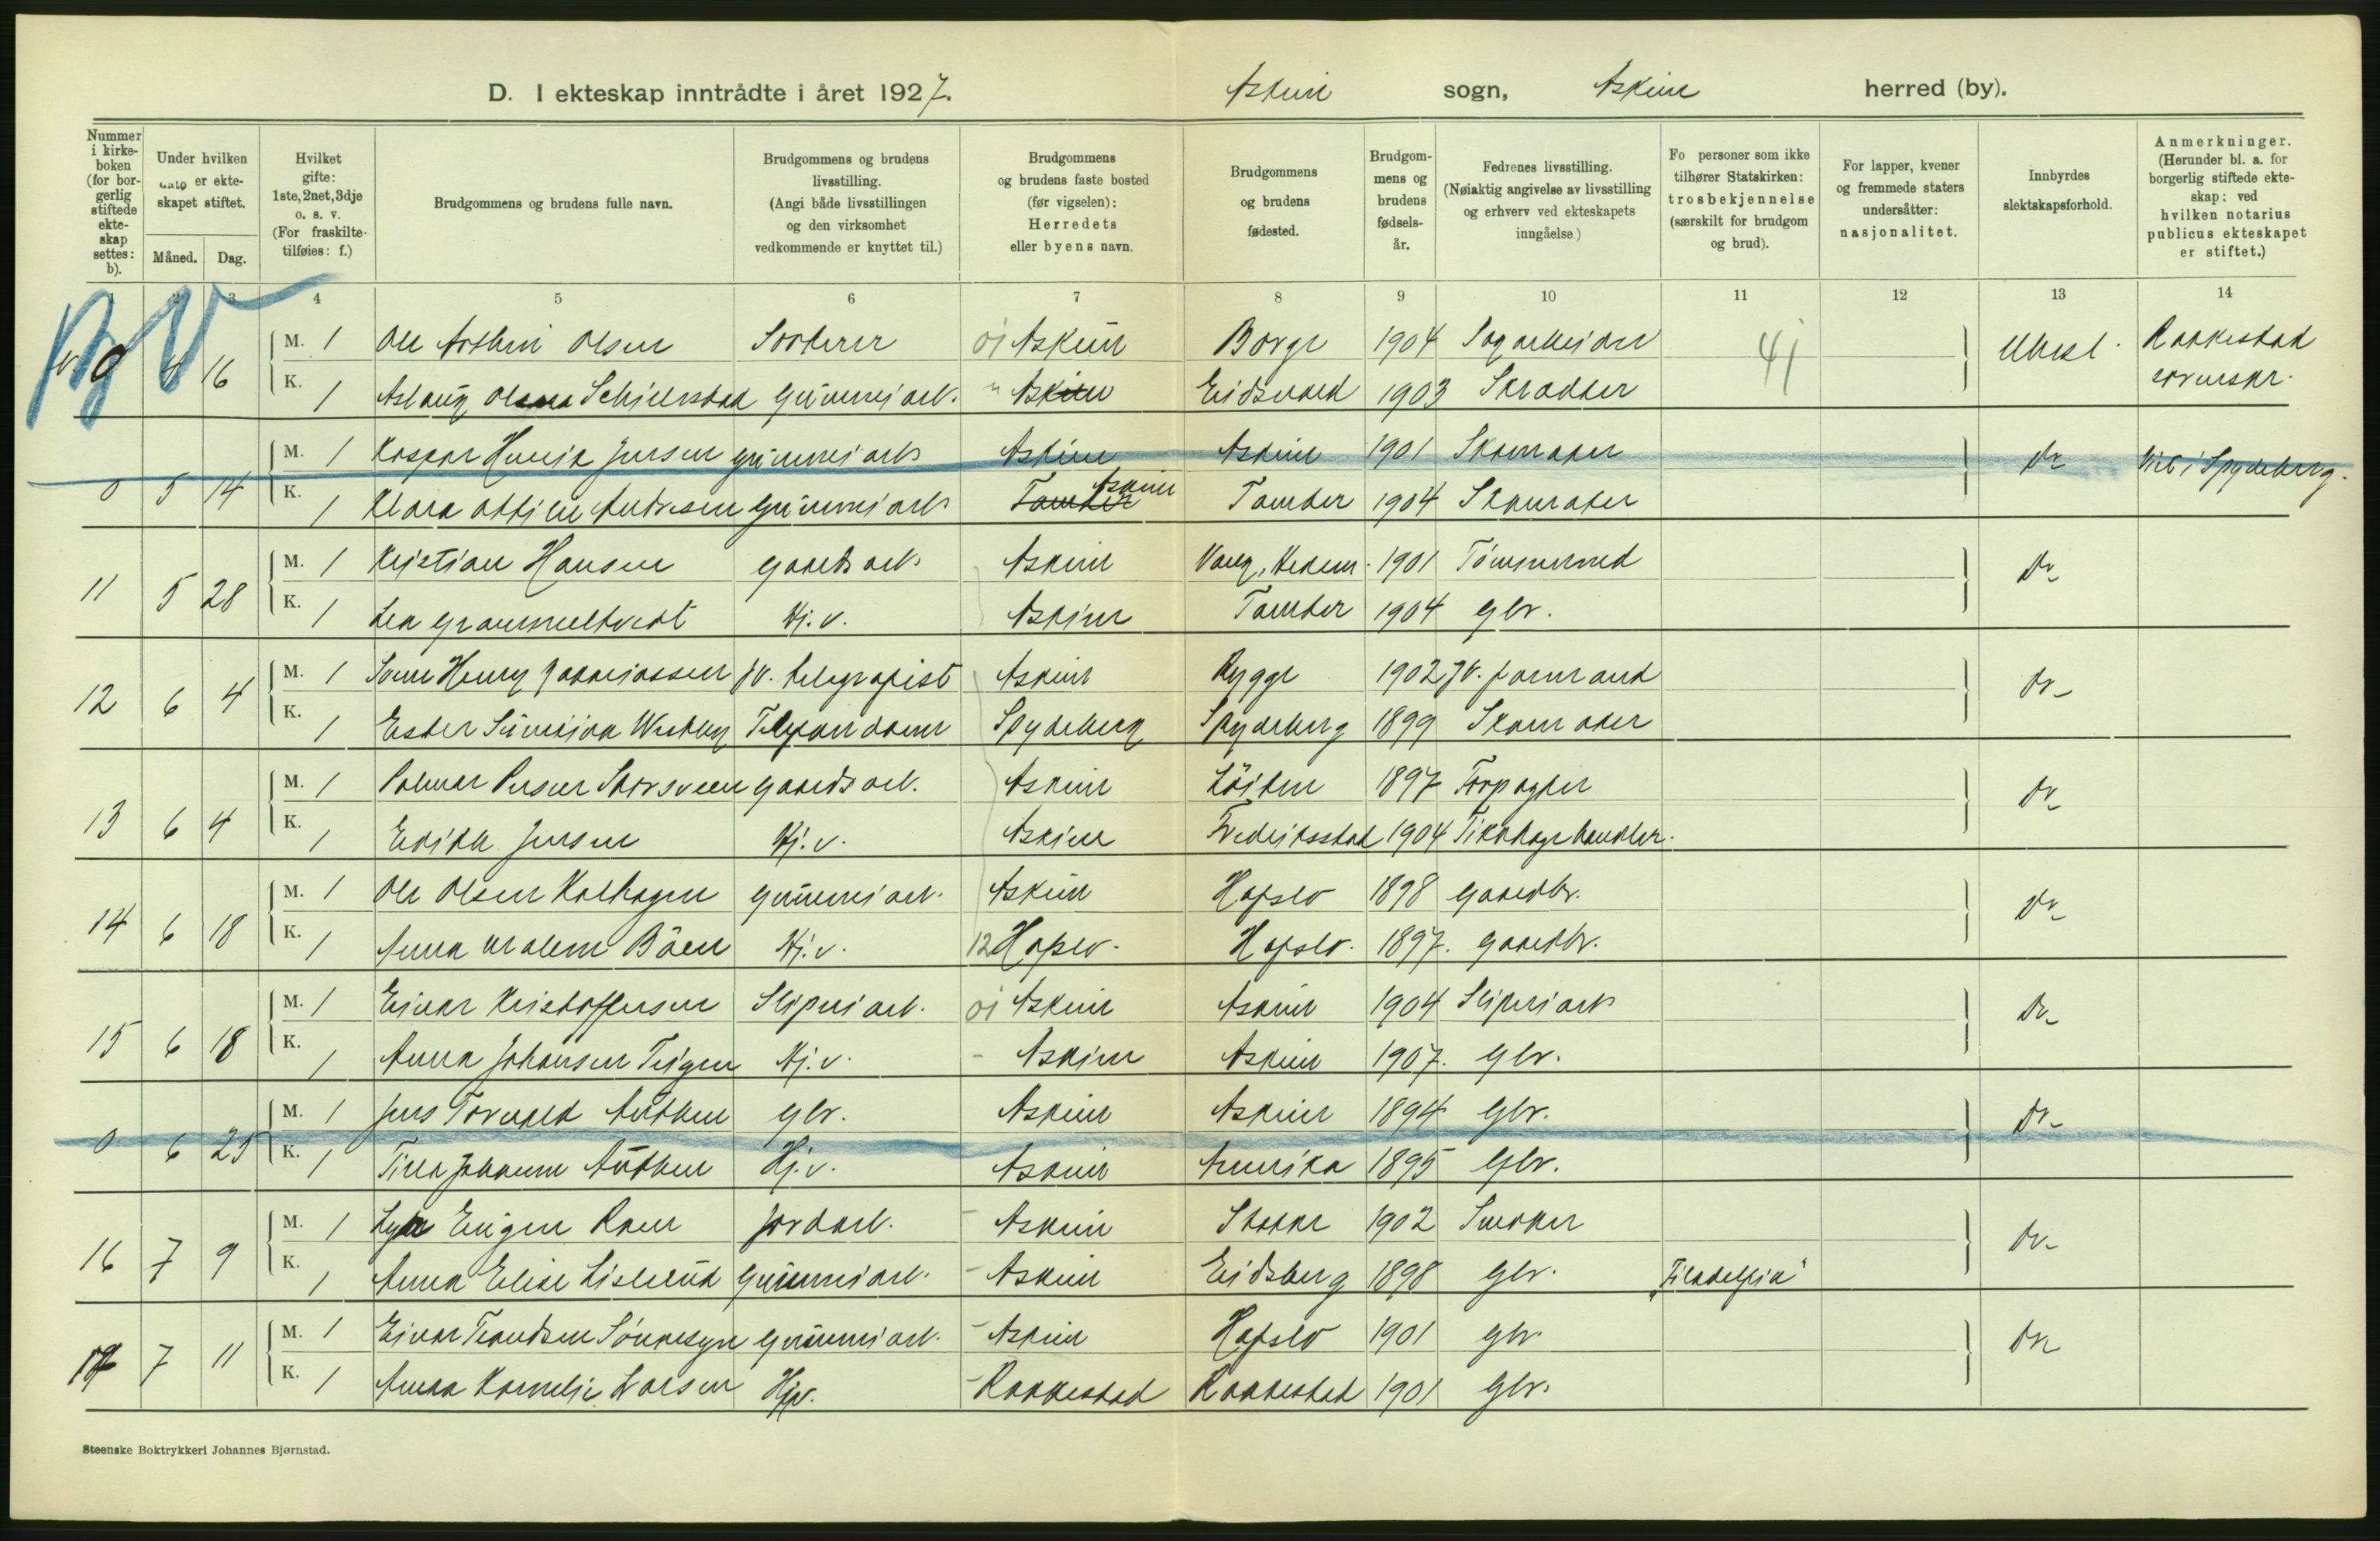 D. I ekteskap inntrådte i året 1927.
Askim sogn, Askim herred (by).
Nummer i kirke-boken (for bor-gerlig stiftede ekte-skap settes: b).
Under hvilken dato er ekte-skapet stiftet.
Måned. Dag.
Hvilket gifte: 1ste, 2net, 3dje o. s. v. (For fraskilte tilføies: f.)
Brudgommens og brudens fulle navn.
Brudgommens og brudens livsstilling. (Angi både livsstillingen og den virksomhet vedkommende er knyttet til.)
Brudgommens og brudens faste bosted (før vigselen): Herredets eller byens navn.
Brudgommens og brudens fødested.
Brudgom-mens og brudens fødsels-år.
Fedrenes livsstilling. (Nøiaktig angivelse av livsstilling og erhverv ved ekteskapets inngåelse.)
Fo personer som ikke tilhører Statskirken: trosbekjennelse (særskilt for brudgom og brud).
For lapper, kvener og fremmede staters undersåtter: nasjonalitet.
Innbyrdes slektskapsforhold.
Anmerkninger. (Herunder bl. a. for borgerlig stiftede ekte-skap: ved hvilken notarius publicus ekteskapet er stiftet.)
1 2 3 4 5 6 7 8 9 10 11 12 13 14
9 4 16 M. 1 Ole Arthur Olsen Sorterer 01 Askim Borge 1904 Sagarbeider 41 Ubesl. Rakkestad sorenskr.
K. 1 Aslaug Olena Schjerstad Gummiarb. " Askim Eidsvold 1903 Skrædder
0 5 14 M. 1 Kaspar Henrik Jensen Gummiarb Askim Askim 1901 Skomaker Do Viet i Spydeberg.
K. 1 Klara Ottilie Andresen Gummiarb Tomter Askim Tomter 1904 Skomaker
11 5 28 M. 1 Kristian Hansen Gaardsarb. Askim Vang, Hedem. 1901 Tömmermd Do
K. 1 Lea Grammeltvedt Hj.v. Askim Tomter 1904 Gbr.
12 6 4 M. 1 Svenn Henry Zakariassen Jv. telegrafist Askim Rygge 1902 Jv. formand Do
K. 1 Ester Simonia Westby Telefondame Spydeberg Spydeberg 1899 Skomaker
13 6 4 M. 1 Palmar Persen Storsveen Gaardsarb. Askim Löiten 1897 Forpagter Do
K. 1 Edith Jensen Hj.v. Askim Fredriksstad 1904 Fiskehandler.
14 6 18 M. 1 Ole Olsen Kalhagen Gummiarb. Askim Hafslo 1898 Gaardbr. Do
K. 1 Anna Malene Böen Hj.v. 12 Hafslo. Hafslo. 1897. Gaardbr.
15 6 18 M. 1 Einar Kristoffersen Sliperiarb. 01 Askim Askim 1904 Sliperiarb Do
K. 1 Anna Johansen Teigen Hj.v. - Askim Askim 1907. Gbr.
0 6 25 M. 1 Jens Torvald Authen Gbr. Askim Askim 1894 Gbr. Do
K. 1 Tilla Johanne Authen Hj.v. Askim Amerika 1895 Gbr.
16 7 9 M. 1 Eugen Roen Jordarb. - Askim Stokke 1902 Snekker Do
K. 1 Anna Elise Lislerud Gummiarb. - Askim Eidsberg 1898 Gbr. "Filadelfia"
17 7 11 M. 1 Einar Trondsen Sönnesyn Gummiarb. - Askim Hafslo 1901 Gbr. Do
K. 1 Anna Kornelie Larsen Hj.v. - Rakkestad Rakkestad 1901 Gbr.
Steenske Boktrykkeri Johannes Bjørnstad.